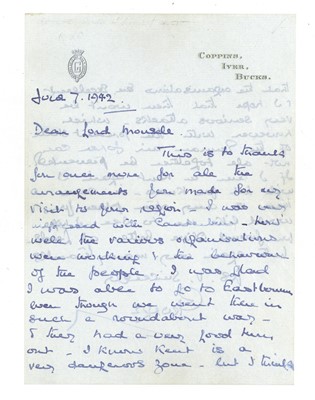 COPPINS,
IVER,
BUCKS.
June 7. 1942
Dear Lord Monsell
This is to thank
you once more for all the
arrangements you made for my
visit to your region. I was
impressed with Canterbury - how
well the various organisations
were working & the behaviour
of the people. I was glad
I was able to go to Eastbourne
even though we went there in
such a roundabout way -
& they had a very good turn
out - I know Kent is a
very dangerous zone - but I think